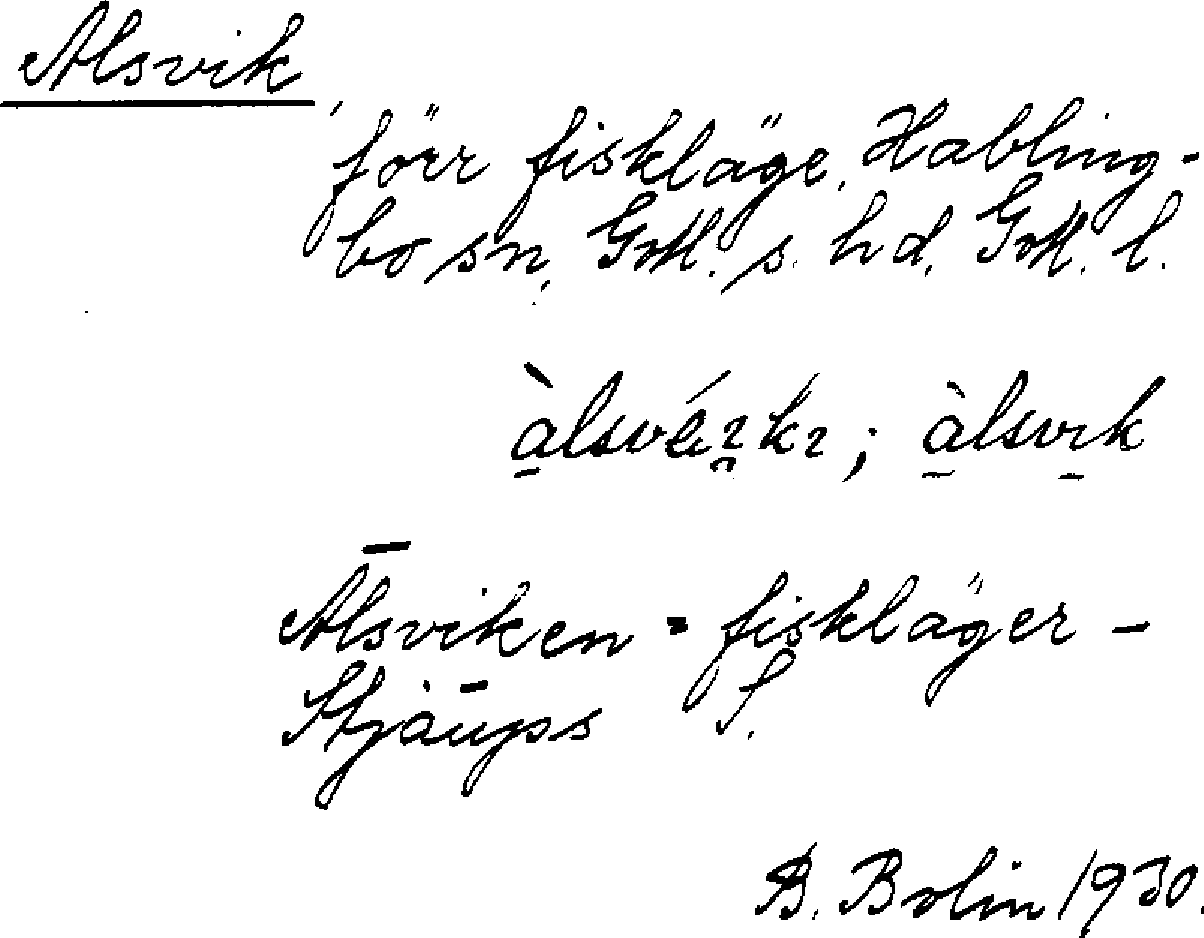 Alsvik
förr fiskläge, Habling-
bo sn, Gotl. s. hd, Gotl. l.
àlsvik
Alsviken = fiskläger -
Stjàups S.
B. Bolin 1930.